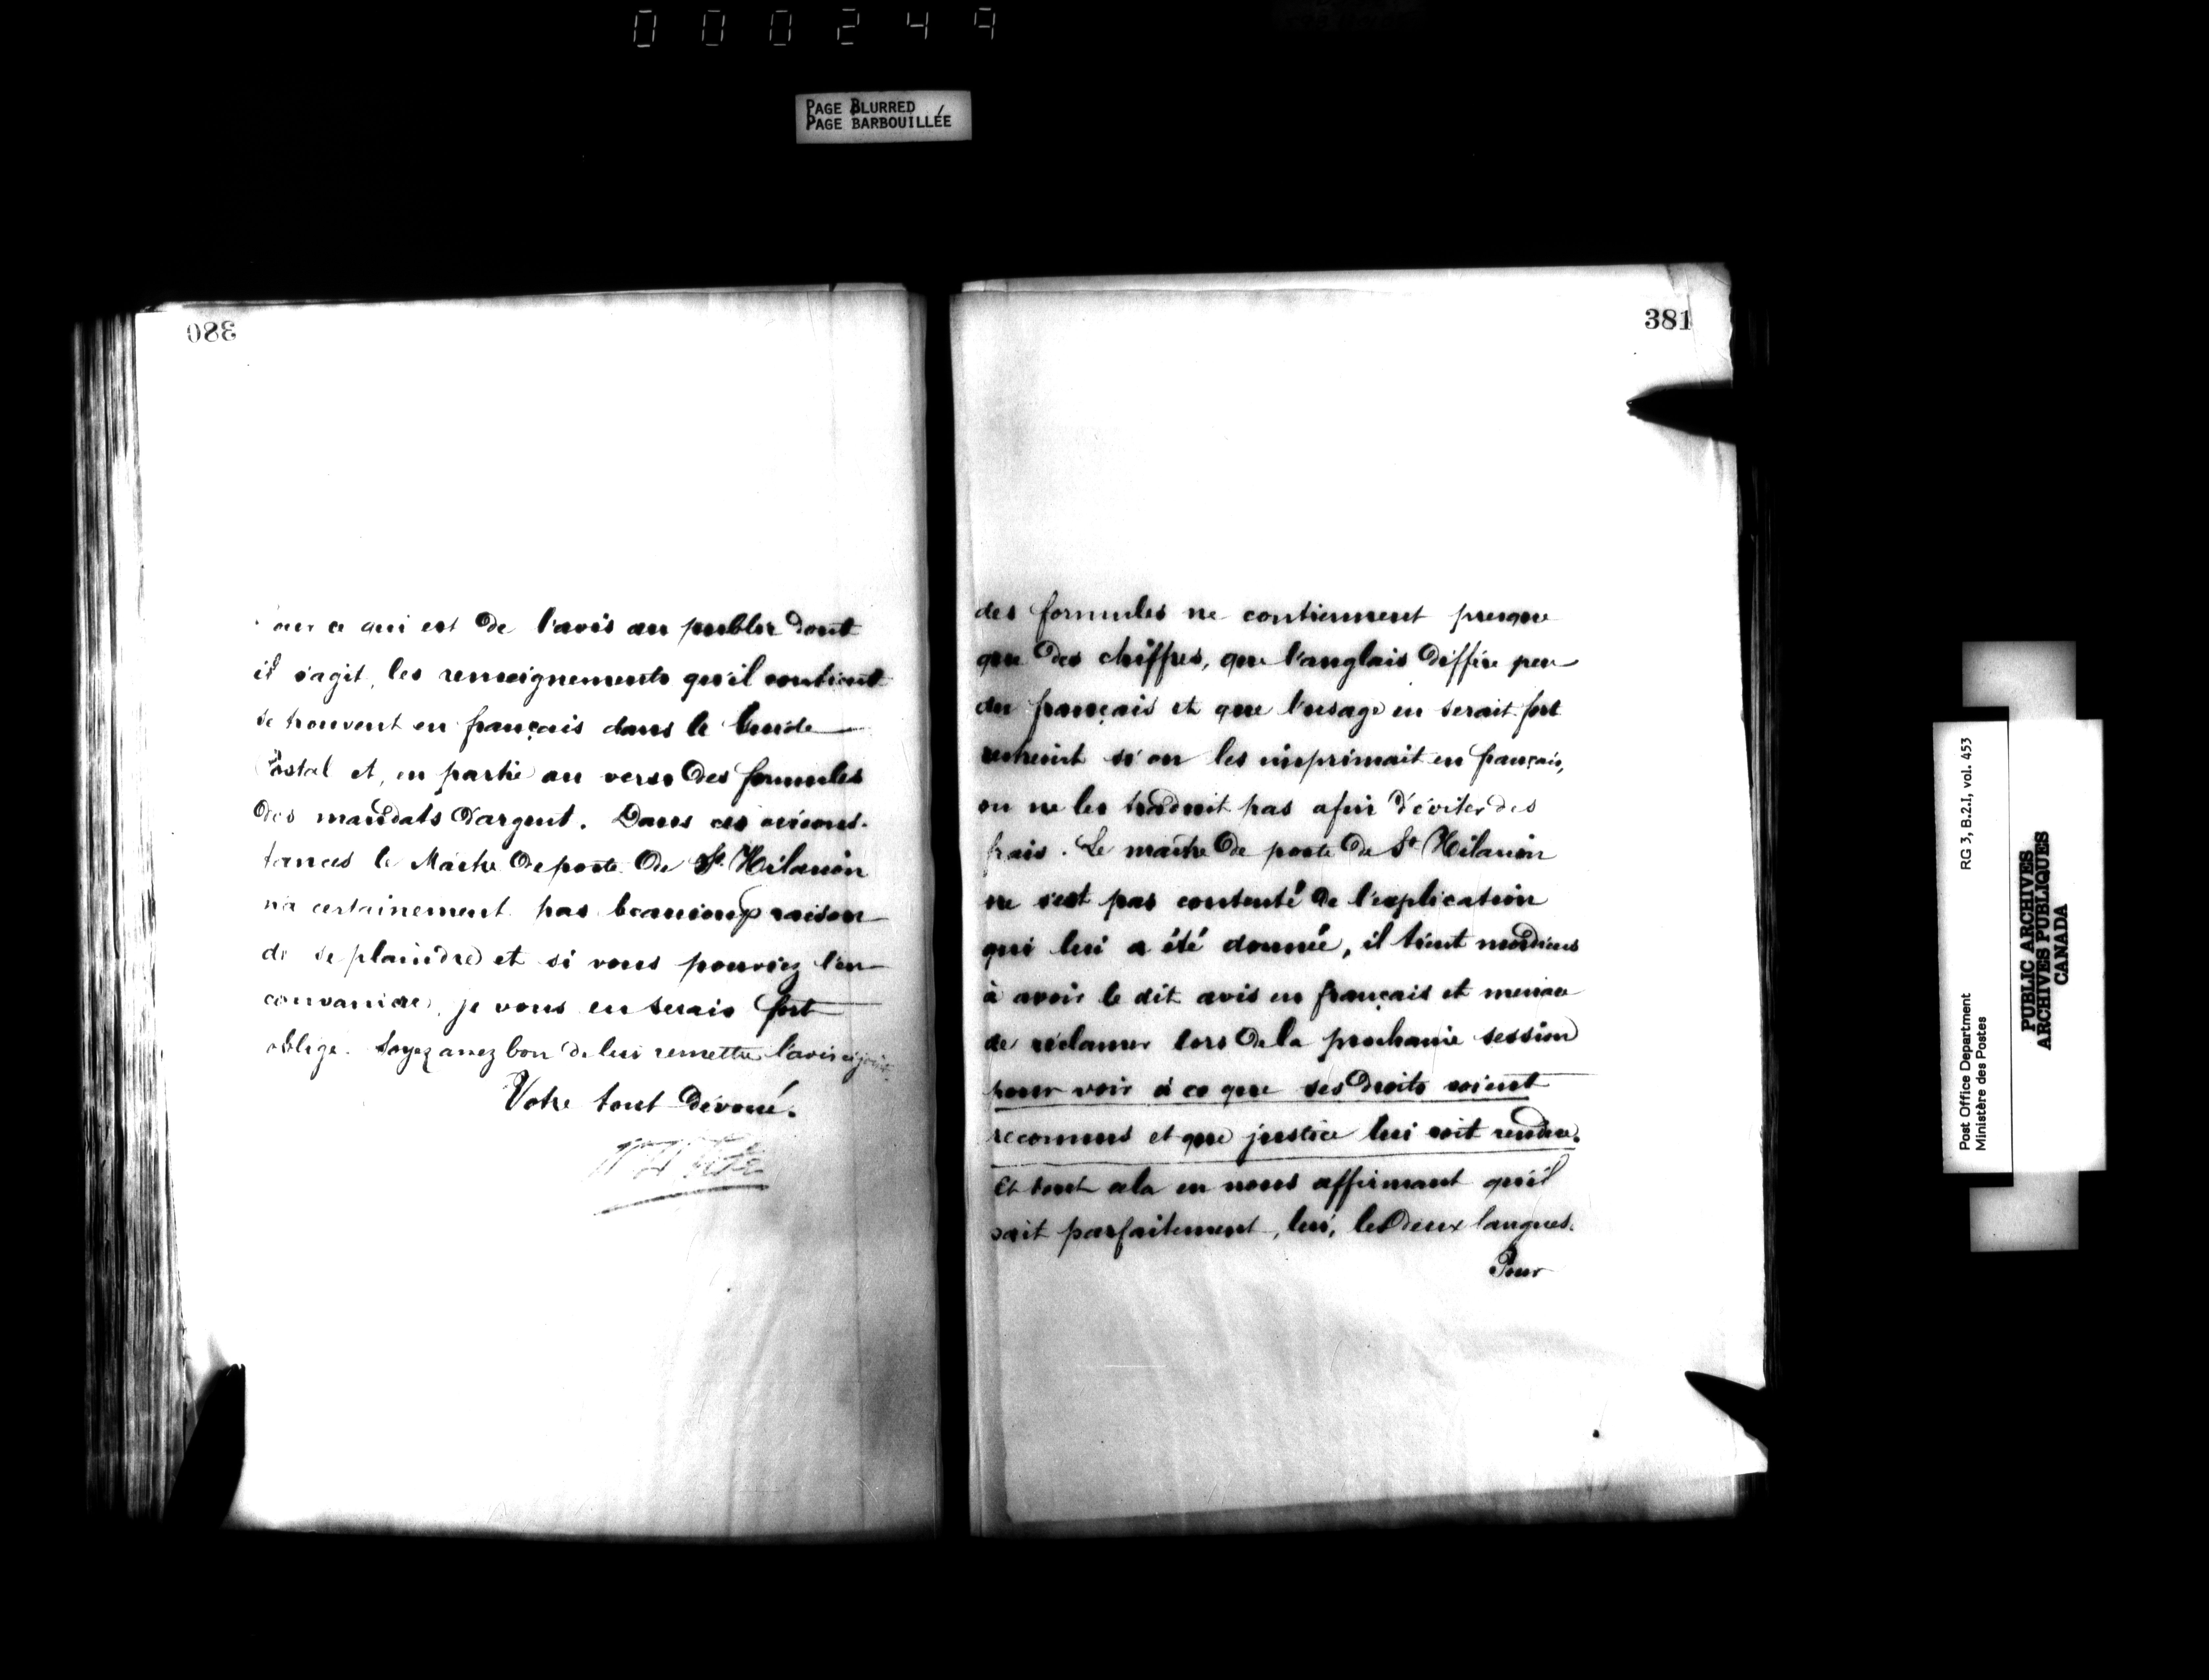 000249
PAGE BLURRED
PAGE BARBOUILLÉE
380
Pour ce qui est de l'avis au public dont
il s'agit, les renseignements qu'il contient
se trouvent en français dans le Guide
Postal et, en partie au verso des formules
des mandats d'argent. Dans ces circons-
tances le Maître de poste de St. Hilarion
n'a certainement pas beaucoup raison
de se plaindre et si vous pouviez l'en
convaincre, je vous en serais fort
obligé. Soyez assez bon de lui remettre l'avis ci-joint
Votre tout dévoué.
381
des formules ne contiennent presque
que des chiffres, que l'anglais diffère peu
du français et que l'usage en serait fort
restreint si on les imprimait en français,
on ne les traduit pas afin d'éviter des
frais. Le maître de poste de St Hilarion
ne s'est pas contenté de l'explication
qui lui a été donnée, il tient mordicus
à avoir le dit avis en français et menace
de réclamer lors de la prochaine session
pour voir à ce que ses droits soient
reconnus et que justice lui soit rendue.
Et tout cela en nous affirmant qu'il
sait parfaitement, lui, les deux langues.
Pour
Post Office Department
Ministère des Postes
RG 3, B.2.I, vol. 453
PUBLIC ARCHIVES
ARCHIVES PUBLIQUES
CANADA